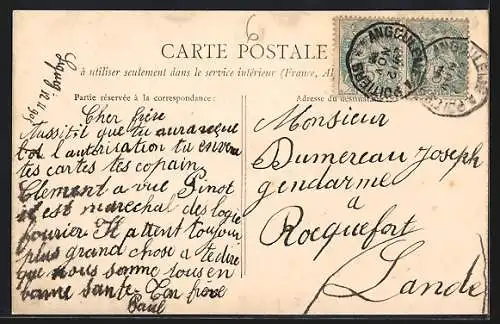 6
CARTE POSTALE
à utiliser seulement dans le service intérieur (France, Al
Partie réservée à la correspondance
Adresse du destinataire
ANGOULÊME A POITIERS
ANGOULÊME
Cher frère
Aussitôt que tu aura reçue
l'autorisation tu envera
tes cartes tes copain
Clement a vue Pinot
il est marechal des logis
fourier. Il atent toujour
plus grand chose a te dire
que nous somme tous en
bonne sante. Ton frère
Paul
Monsieur
Dumereau Joseph
gendarme
a
Rocquefort
Lande